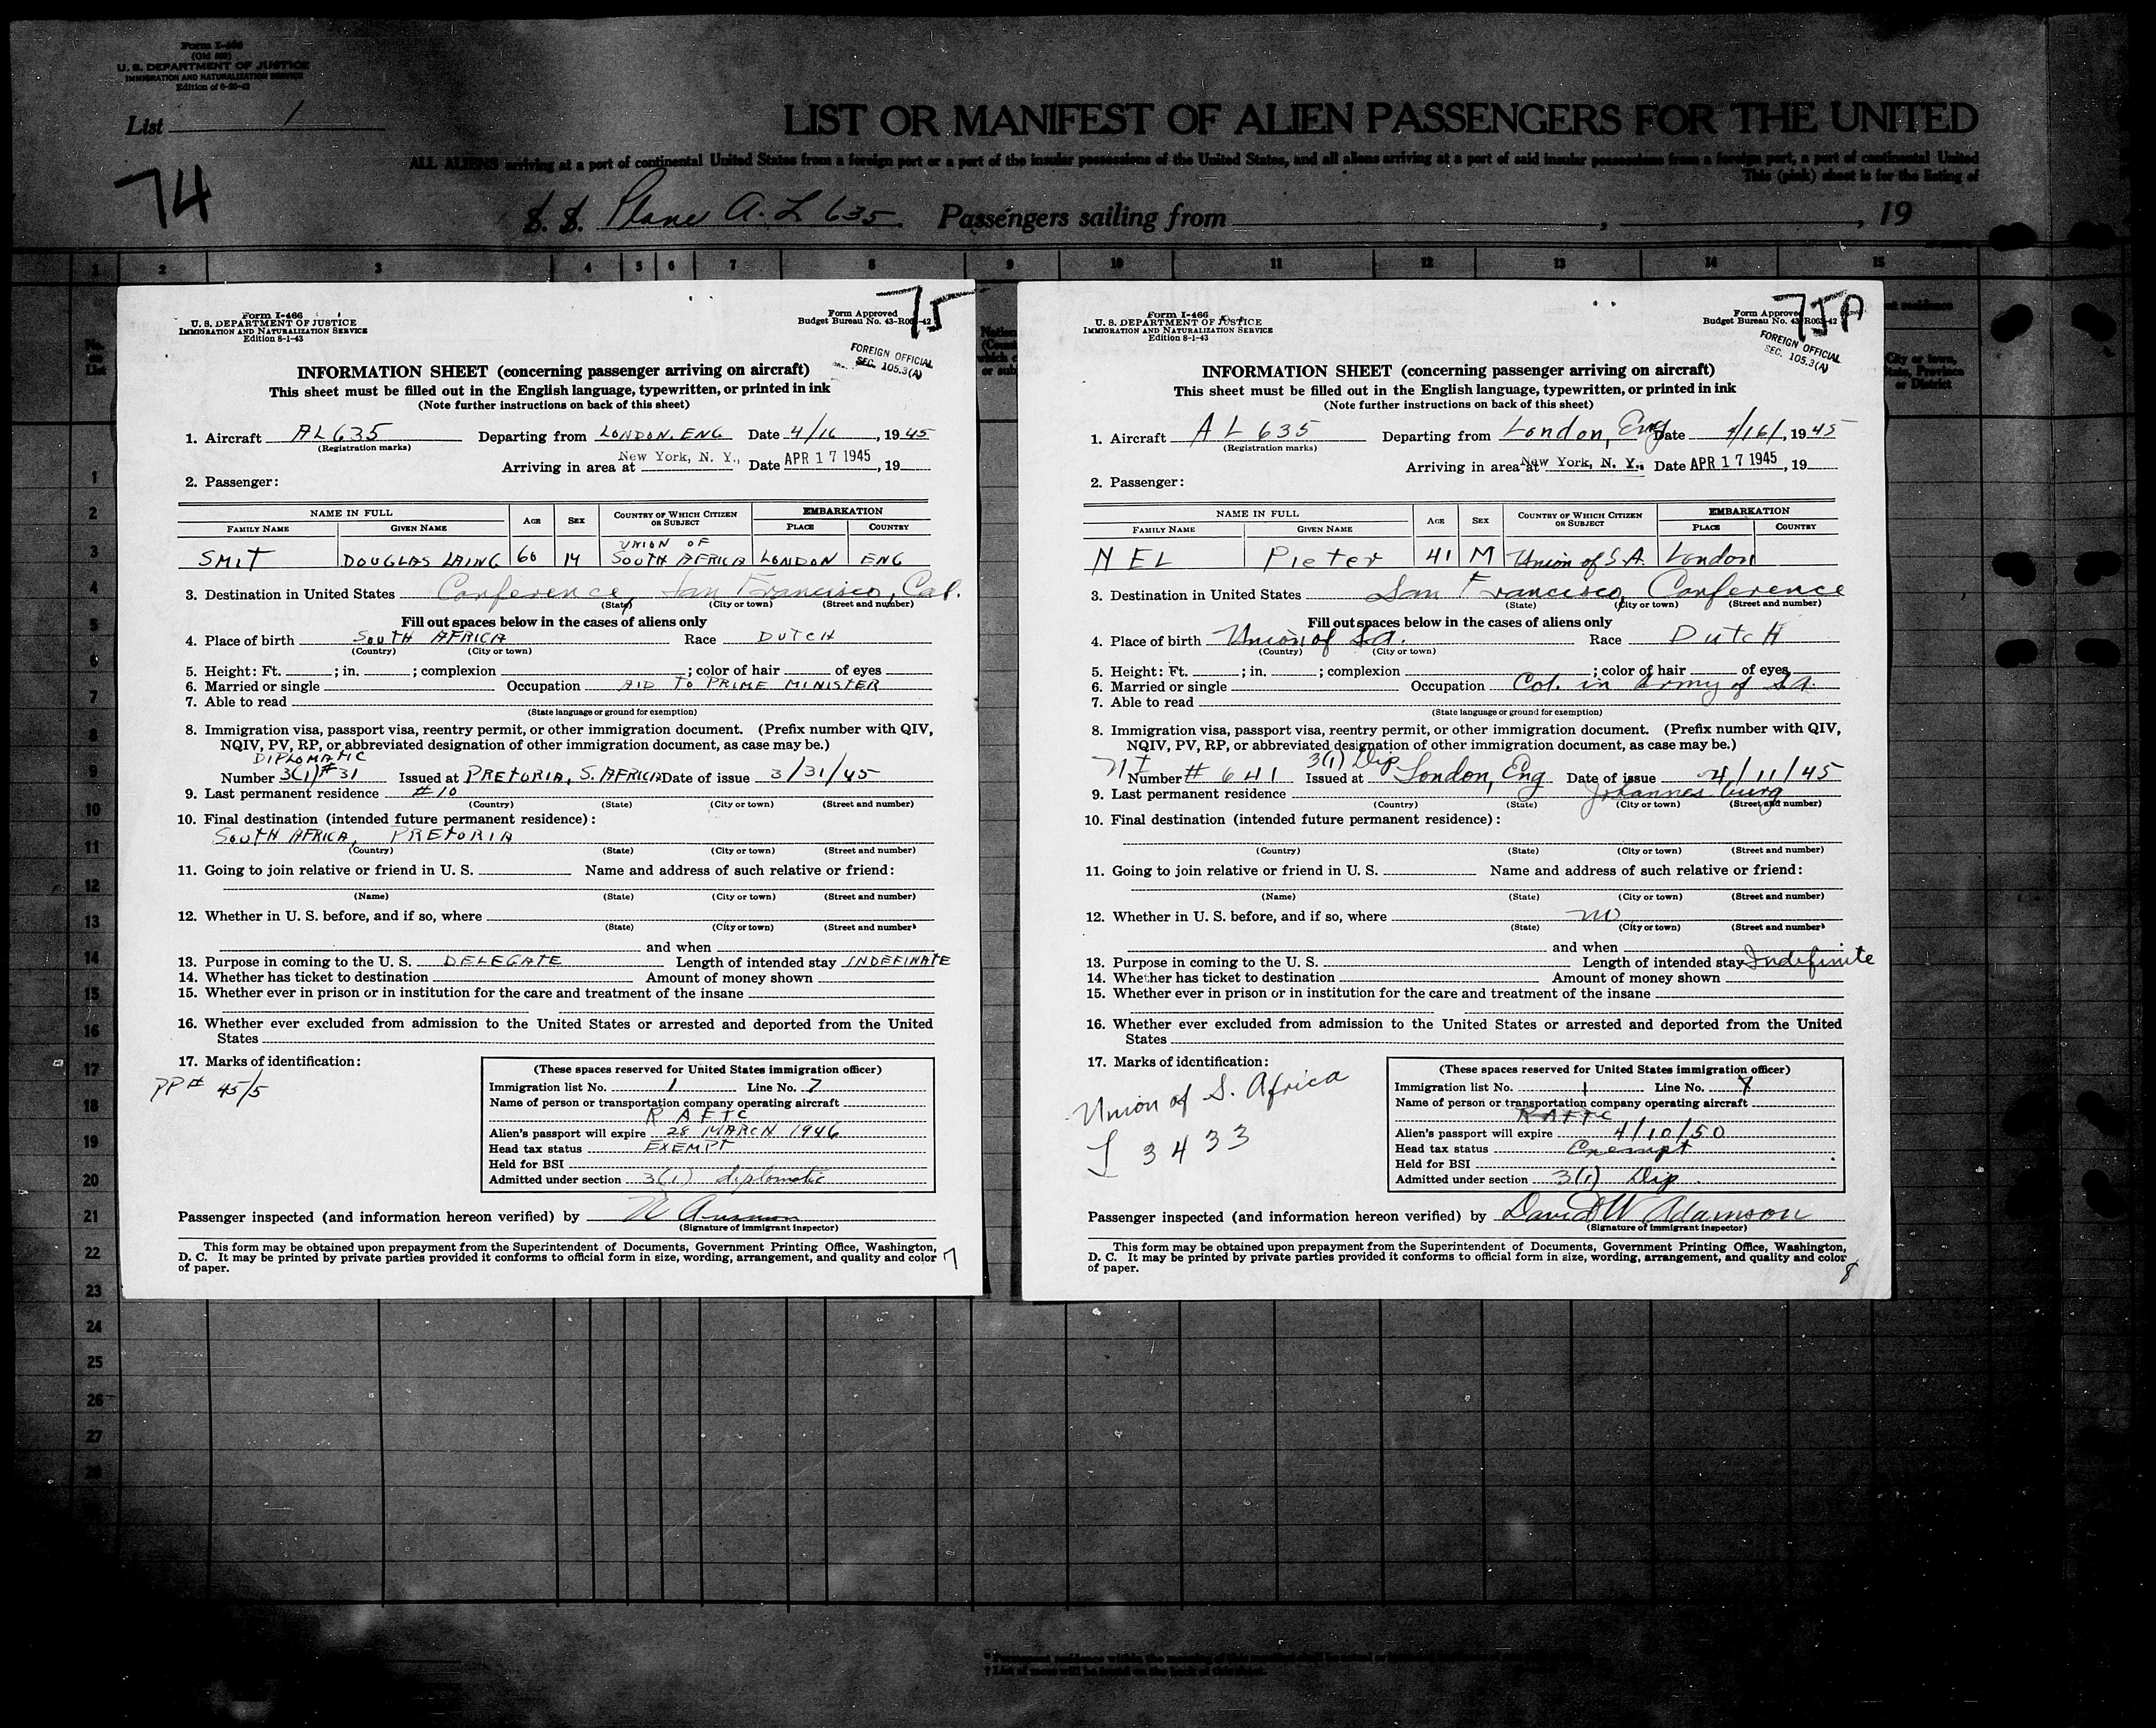 Form I-466
(Old 602)
U. S. DEPARTMENT OF JUSTICE
IMMIGRATION AND NATURALIZATION SERVICE
List 1
LIST OR MANIFEST OF ALIEN PASSENGERS FOR THE UNITED
ALL ALIENS arriving at a port of continental United States from a foreign port or a port of the insular possessions of the United States, and all aliens arriving at a port of said insular possessions from a foreign port, a port of continental United
This (pink) sheet is for the listing of
74
S. S. Plane A. L 635 Passengers sailing from , , 19
1 2 3 4 5 6 7 8 9 10 11 12 13 14 15
75
Form I-466
U. S. DEPARTMENT OF JUSTICE
IMMIGRATION AND NATURALIZATION SERVICE
Edition 8-1-43
Form Approved
Budget Bureau No. 43-R063-42
FOREIGN OFFICIAL
SEC. 105.3(A)
INFORMATION SHEET (concerning passenger arriving on aircraft)
This sheet must be filled out in the English language, typewritten, or printed in ink
(Note further instructions on back of this sheet)
1. Aircraft AL635 Departing from LONDON. ENG Date 4/16, 1945
(Registration marks)
Arriving in area at New York, N. Y., Date APR 17 1945, 19
2. Passenger:
NAME IN FULL AGE SEX COUNTRY OF WHICH CITIZEN OR SUBJECT EMBARKATION
FAMILY NAME GIVEN NAME PLACE COUNTRY
SMIT DOUGLAS LAING 60 M UNION OF SOUTH AFRICA LONDON ENG
3. Destination in United States Conference, San Francisco, Cal.
(State) (City or town) (Street and number)
Fill out spaces below in the cases of aliens only
4. Place of birth SOUTH AFRICA Race DUTCH
(Country) (City or town)
5. Height: Ft. ; in. ; complexion ; color of hair of eyes
6. Married or single Occupation AID TO PRIME MINISTER
7. Able to read
(State language or ground for exemption)
8. Immigration visa, passport visa, reentry permit, or other immigration document. (Prefix number with QIV,
NQIV, PV, RP, or abbreviated designation of other immigration document, as case may be.)
DIPLOMATIC
Number 3(1) #31 Issued at PRETORIA, S. AFRICA Date of issue 3/31/45
9. Last permanent residence #10
(Country) (State) (City or town) (Street and number)
10. Final destination (intended future permanent residence):
SOUTH AFRICA, PRETORIA
(Country) (State) (City or town) (Street and number)
11. Going to join relative or friend in U. S. Name and address of such relative or friend:
(Name) (State) (City or town) (Street and number)
12. Whether in U. S. before, and if so, where
(State) (City or town) (Street and number)
and when
13. Purpose in coming to the U. S. DELEGATE Length of intended stay INDEFINATE
14. Whether has ticket to destination Amount of money shown
15. Whether ever in prison or in institution for the care and treatment of the insane
16. Whether ever excluded from admission to the United States or arrested and deported from the United
States
17. Marks of identification:
PP# 45/5
(These spaces reserved for United States immigration officer)
Immigration list No. 1 Line No. 7
Name of person or transportation company operating aircraft
R A F T C
Alien's passport will expire 28 MARCH 1946
Head tax status EXEMPT
Held for BSI
Admitted under section 3(1) diplomatic
Passenger inspected (and information hereon verified) by
(Signature of immigrant inspector)
This form may be obtained upon prepayment from the Superintendent of Documents, Government Printing Office, Washington,
D. C. It may be printed by private parties provided it conforms to official form in size, wording, arrangement, and quality and color
of paper.
7
75A
Form I-466
U. S. DEPARTMENT OF JUSTICE
IMMIGRATION AND NATURALIZATION SERVICE
Edition 8-1-43
Form Approved
Budget Bureau No. 43-R063-42
FOREIGN OFFICIAL
SEC. 105.3(A)
INFORMATION SHEET (concerning passenger arriving on aircraft)
This sheet must be filled out in the English language, typewritten, or printed in ink
(Note further instructions on back of this sheet)
1. Aircraft AL 635 Departing from London, Eng Date 4/16/, 1945
(Registration marks)
Arriving in area at New York, N. Y., Date APR 17 1945, 19
2. Passenger:
NAME IN FULL AGE SEX COUNTRY OF WHICH CITIZEN OR SUBJECT EMBARKATION
FAMILY NAME GIVEN NAME PLACE COUNTRY
NEL Pieter 41 M Union of S.A. London
3. Destination in United States San Francisco, Conference
(State) (City or town) (Street and number)
Fill out spaces below in the cases of aliens only
4. Place of birth Union of S.A. Race DutcH
(Country) (City or town)
5. Height: Ft. ; in. ; complexion ; color of hair of eyes
6. Married or single Occupation Col. in Army of S.A.
7. Able to read
(State language or ground for exemption)
8. Immigration visa, passport visa, reentry permit, or other immigration document. (Prefix number with QIV,
NQIV, PV, RP, or abbreviated designation of other immigration document, as case may be.)
3(1) Dip
Number # 641 Issued at London, Eng Date of issue 4/11/45
9. Last permanent residence Johannesburg
(Country) (State) (City or town) (Street and number)
10. Final destination (intended future permanent residence):
(Country) (State) (City or town) (Street and number)
11. Going to join relative or friend in U. S. Name and address of such relative or friend:
(Name) (State) (City or town) (Street and number)
12. Whether in U. S. before, and if so, where no
(State) (City or town) (Street and number)
and when
13. Purpose in coming to the U. S. Length of intended stay Indefinite
14. Whether has ticket to destination Amount of money shown
15. Whether ever in prison or in institution for the care and treatment of the insane
16. Whether ever excluded from admission to the United States or arrested and deported from the United
States
17. Marks of identification:
Union of S. Africa
3433
(These spaces reserved for United States immigration officer)
Immigration list No. 1 Line No.
Name of person or transportation company operating aircraft
R A F T C
Alien's passport will expire 4/10/50
Head tax status Exempt
Held for BSI
Admitted under section 3(1) Dip.
Passenger inspected (and information hereon verified) by David W Adamson
(Signature of immigrant inspector)
This form may be obtained upon prepayment from the Superintendent of Documents, Government Printing Office, Washington,
D. C. It may be printed by private parties provided it conforms to official form in size, wording, arrangement, and quality and color
of paper.
8